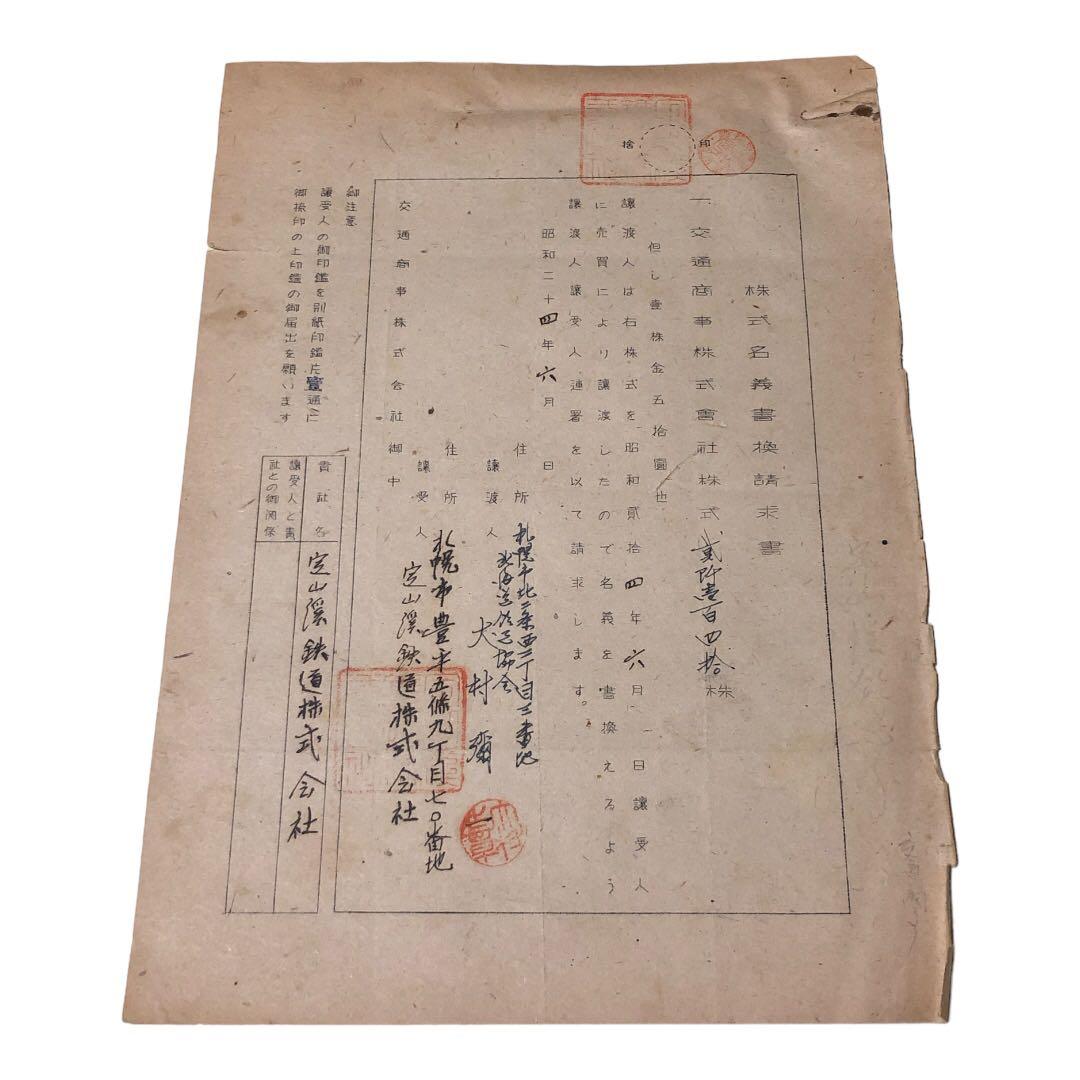 捨印
株式名義書換請求書
一交通商事株式會社株式貳阡壹百四拾株
但し壹株金五拾圓也
譲渡人は右株式を昭和貳拾四年六月 日譲受人
に売買により譲渡したので名義を書換えるよう
譲渡人譲受人連署を以て請求します。
昭和二十四年六月 日
住所 札幌市北一条西二丁目三番地
北海道 協会
譲渡人 犬村彌一
住所 札幌市豊平五條九丁目七〇番地
譲受人 定山溪鉄道株式会社
交通商事株式会社御中
御注意
譲受人の御印鑑を別紙印鑑片壹通に
御捺印の上印鑑の御届出を願います
貴社名 定山溪鉄道株式会社
譲受人と貴
社との御関係